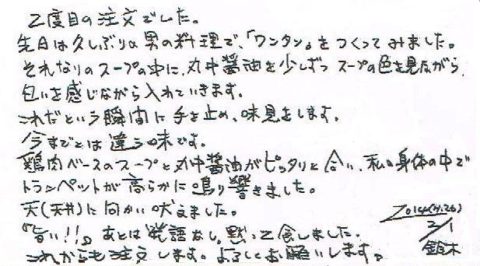 2度目の注文でした。
先日は久しぶりの男の料理で、「ワンタン」をつくってみました。
それなりのスープの中に、丸中醤油を少しずつスープの色を見ながら、
匂いを感じながら入れていきます。
これだという瞬間に手を止め、味見をします。
今までとは違う味です。
鶏肉ベースのスープと丸中醤油がピッタリと合い、私の身体の中で
トランペットが高らかに鳴り響きました。
天(天井)に向かい吠えました。
『旨い!!』あとは発語なし。黙って食しました。
これからも注文します。よろしくお願いします。
2014(H.26)
2/1
鈴木